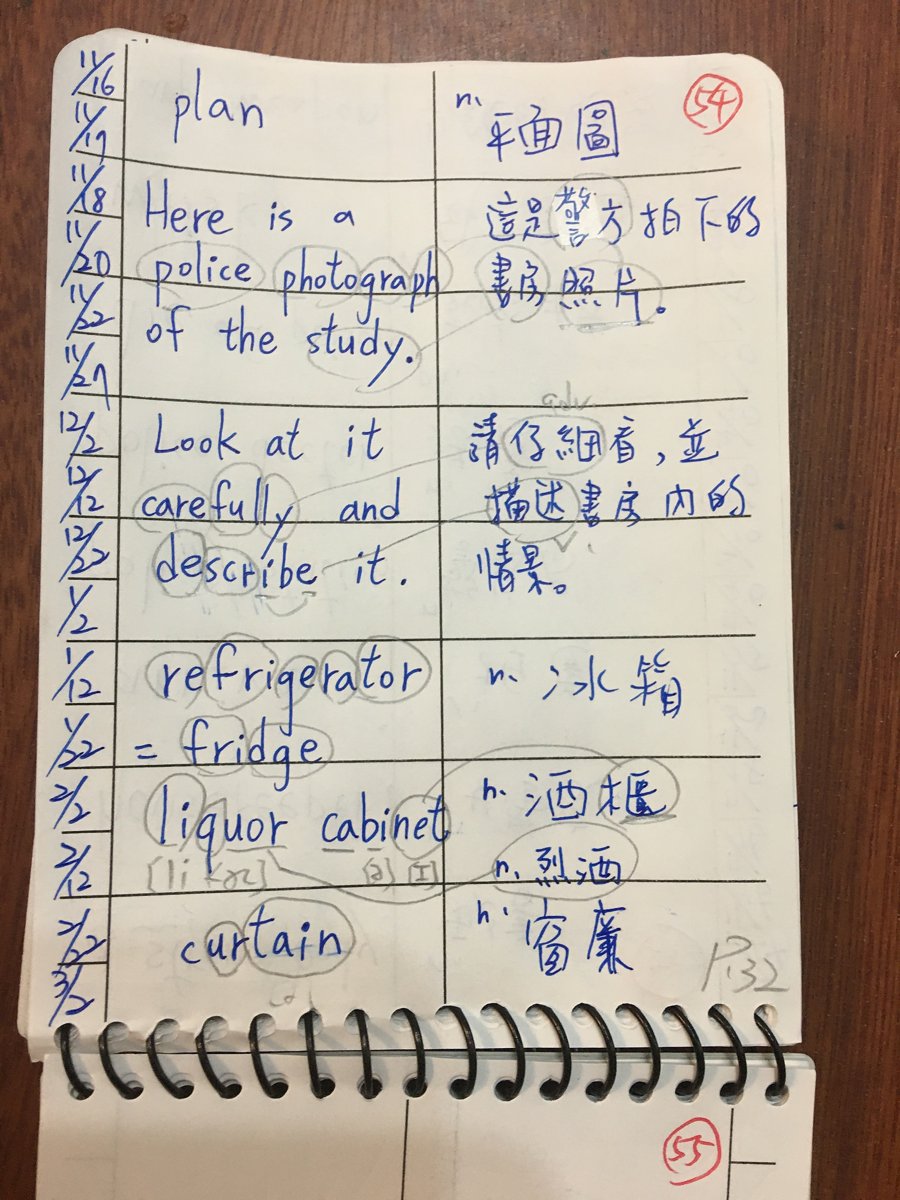 11/16
11/17
11/18
11/20
11/22
11/27
12/2
12/12
12/22
1/2
1/12
1/22
2/2
2/12
2/22
3/2
54
plan
n.
平面圖
Here is a
police photograph
of the study.
這是警方拍下的
書房照片。
Look at it
carefully and
describe it.
adv
請仔細看,並
描述書房內的
v.
情景。
refrigerator
= fridge
n. 冰箱
liquor cabinet
n. 酒櫃
n. 烈酒
curtain
n. 窗簾
P.32
55